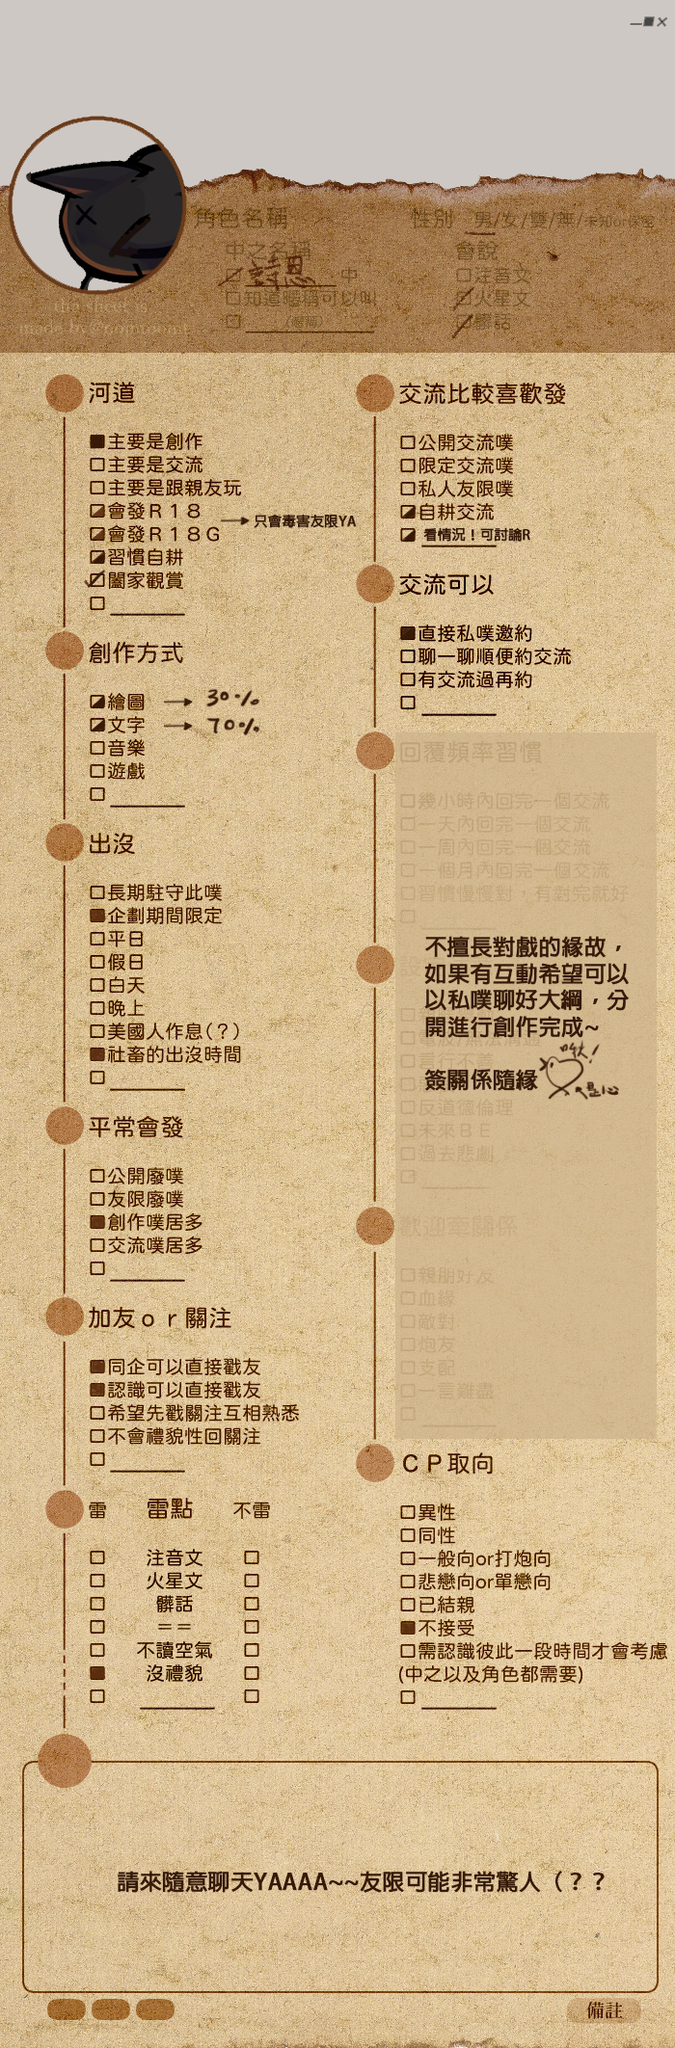 角色名稱
性別 男/女/雙/無/未知or保密
中之名稱
□ 詩恩 中
□知道噗猿可以叫
□
會說
□注音文
□火星文
□髒話
the sheet is
河道
■主要是創作
□主要是交流
□主要是跟親友玩
會發Ｒ１８
會發Ｒ１８Ｇ
→ 只會毒害友限YA
習慣自耕
闔家觀賞
□
創作方式
繪圖 → 30%
文字 → 70%
□音樂
□遊戲
□
出沒
□長期駐守此噗
■企劃期間限定
□平日
□假日
□白天
□晚上
□美國人作息(？)
■社畜的出沒時間
□
平常會發
□公開廢噗
□友限廢噗
■創作噗居多
□交流噗居多
□
加友ｏｒ關注
■同企可以直接戳友
■認識可以直接戳友
□希望先戳關注互相熟悉
□不會禮貌性回關注
□
雷 雷點 不雷
□ 注音文 □
□ 火星文 □
□ 髒話 □
□ ＝＝ □
□ 不讀空氣 □
■ 沒禮貌 □
□ □
交流比較喜歡發
□公開交流噗
□限定交流噗
□私人友限噗
自耕交流
看情況！可討論R
交流可以
■直接私噗邀約
□聊一聊順便約交流
□有交流過再約
□
回覆頻率習慣
□幾小時內回完一個交流
□一天內回完一個交流
□一周內回完一個交流
□一個月內回完一個交流
□習慣慢慢對，有對完就好
□
不擅長對戲的緣故，
如果有互動希望可以
以私噗聊好大綱，分
開進行創作完成~
簽關係隨緣
是心
□反道德倫理
□未來ＢＥ
□過去悲劇
歡迎簽關係
□親朋好友
□血緣
□敵對
□炮友
□支配
□一言難盡
□
ＣＰ取向
□異性
□同性
□一般向or打炮向
□悲戀向or單戀向
□已結親
■不接受
□需認識彼此一段時間才會考慮
(中之以及角色都需要)
□
請來隨意聊天YAAAA~~友限可能非常驚人（？？
備註